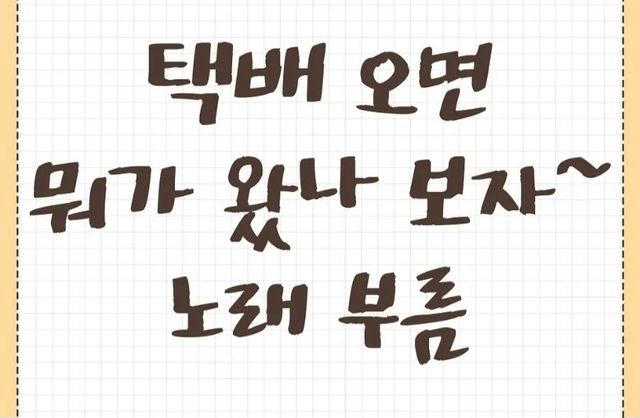 택배 오면
뭐가 왔나 보자~
노래 부름